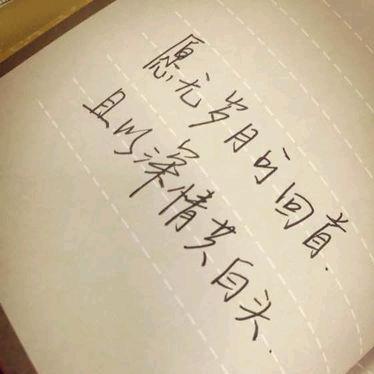 愿无岁月可回首
且以深情共白头.